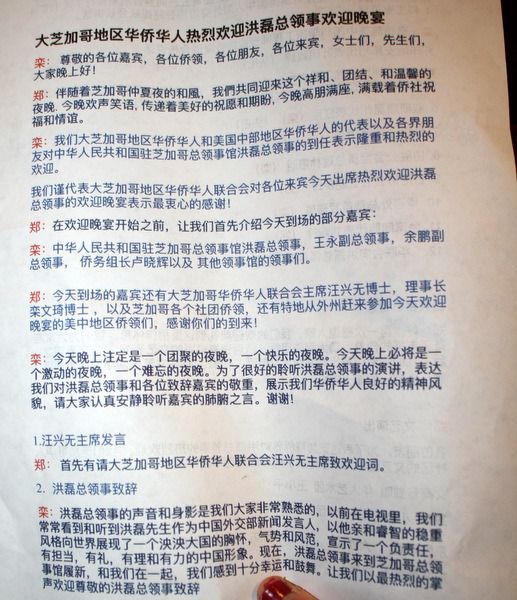 大芝加哥地区华侨华人热烈欢迎洪磊总领事欢迎晚宴
栾：尊敬的各位嘉宾，各位侨领，各位朋友，各位来宾，女士们，先生们，
大家晚上好！
郑：伴随着芝加哥仲夏夜的和風，我們共同迎來这个祥和、团结、和温馨的
夜晚. 今晚欢声笑语, 传递着美好的祝愿和期盼, 今晚高朋满座, 满载着侨社祝
福和情谊。
栾：我们大芝加哥地区华侨华人和美国中部地区华侨华人的代表以及各界朋
友对中华人民共和国驻芝加哥总领事馆洪磊总领事的到任表示隆重和热烈的
欢迎。
我们谨代表大芝加哥地区华侨华人联合会对各位来宾今天出席热烈欢迎洪磊
总领事的欢迎晚宴表示最衷心的感谢！
郑：在欢迎晚宴开始之前，让我们首先介绍今天到场的部分嘉宾：
栾：中华人民共和国驻芝加哥总领事馆洪磊总领事，王永副总领事，余鹏副
总领事， 侨务组长卢晓辉以及 其他领事馆的领事们。
郑：今天到场的嘉宾还有大芝加哥华侨华人联合会主席汪兴无博士，理事长
栾文琦博士，以及芝加哥各个社团侨领，还有特地从外州赶来参加今天欢迎
晚宴的美中地区侨领们，感谢你们的到来！
栾：今天晚上注定是一个团聚的夜晚，一个快乐的夜晚。今天晚上必将是一
个激动的夜晚，一个难忘的夜晚。为了很好的聆听洪磊总领事的演讲，表达
我们对洪磊总领事和各位致辞嘉宾的敬重，展示我们华侨华人良好的精神风
貌，请大家认真安静聆听嘉宾的肺腑之言。谢谢！
1.汪兴无主席发言
郑： 首先有请大芝加哥地区华侨华人联合会汪兴无主席致欢迎词。
2. 洪磊总领事致辞
栾：洪磊总领事的声音和身影是我们大家非常熟悉的，以前在电视里，我们
常常看到和听到洪磊先生作为中国外交部新闻发言人，以他亲和睿智的稳重
风格向世界展现了一个泱泱大国的胸怀，气势和风范，宣示了一个负责任，
有担当，有礼，有理和有力的中国形象。现在，洪磊总领事来到芝加哥总领
事馆履新，和我们在一起，我们感到十分幸运和鼓舞。让我们以最热烈的掌
声欢迎尊敬的洪磊总领事致辞